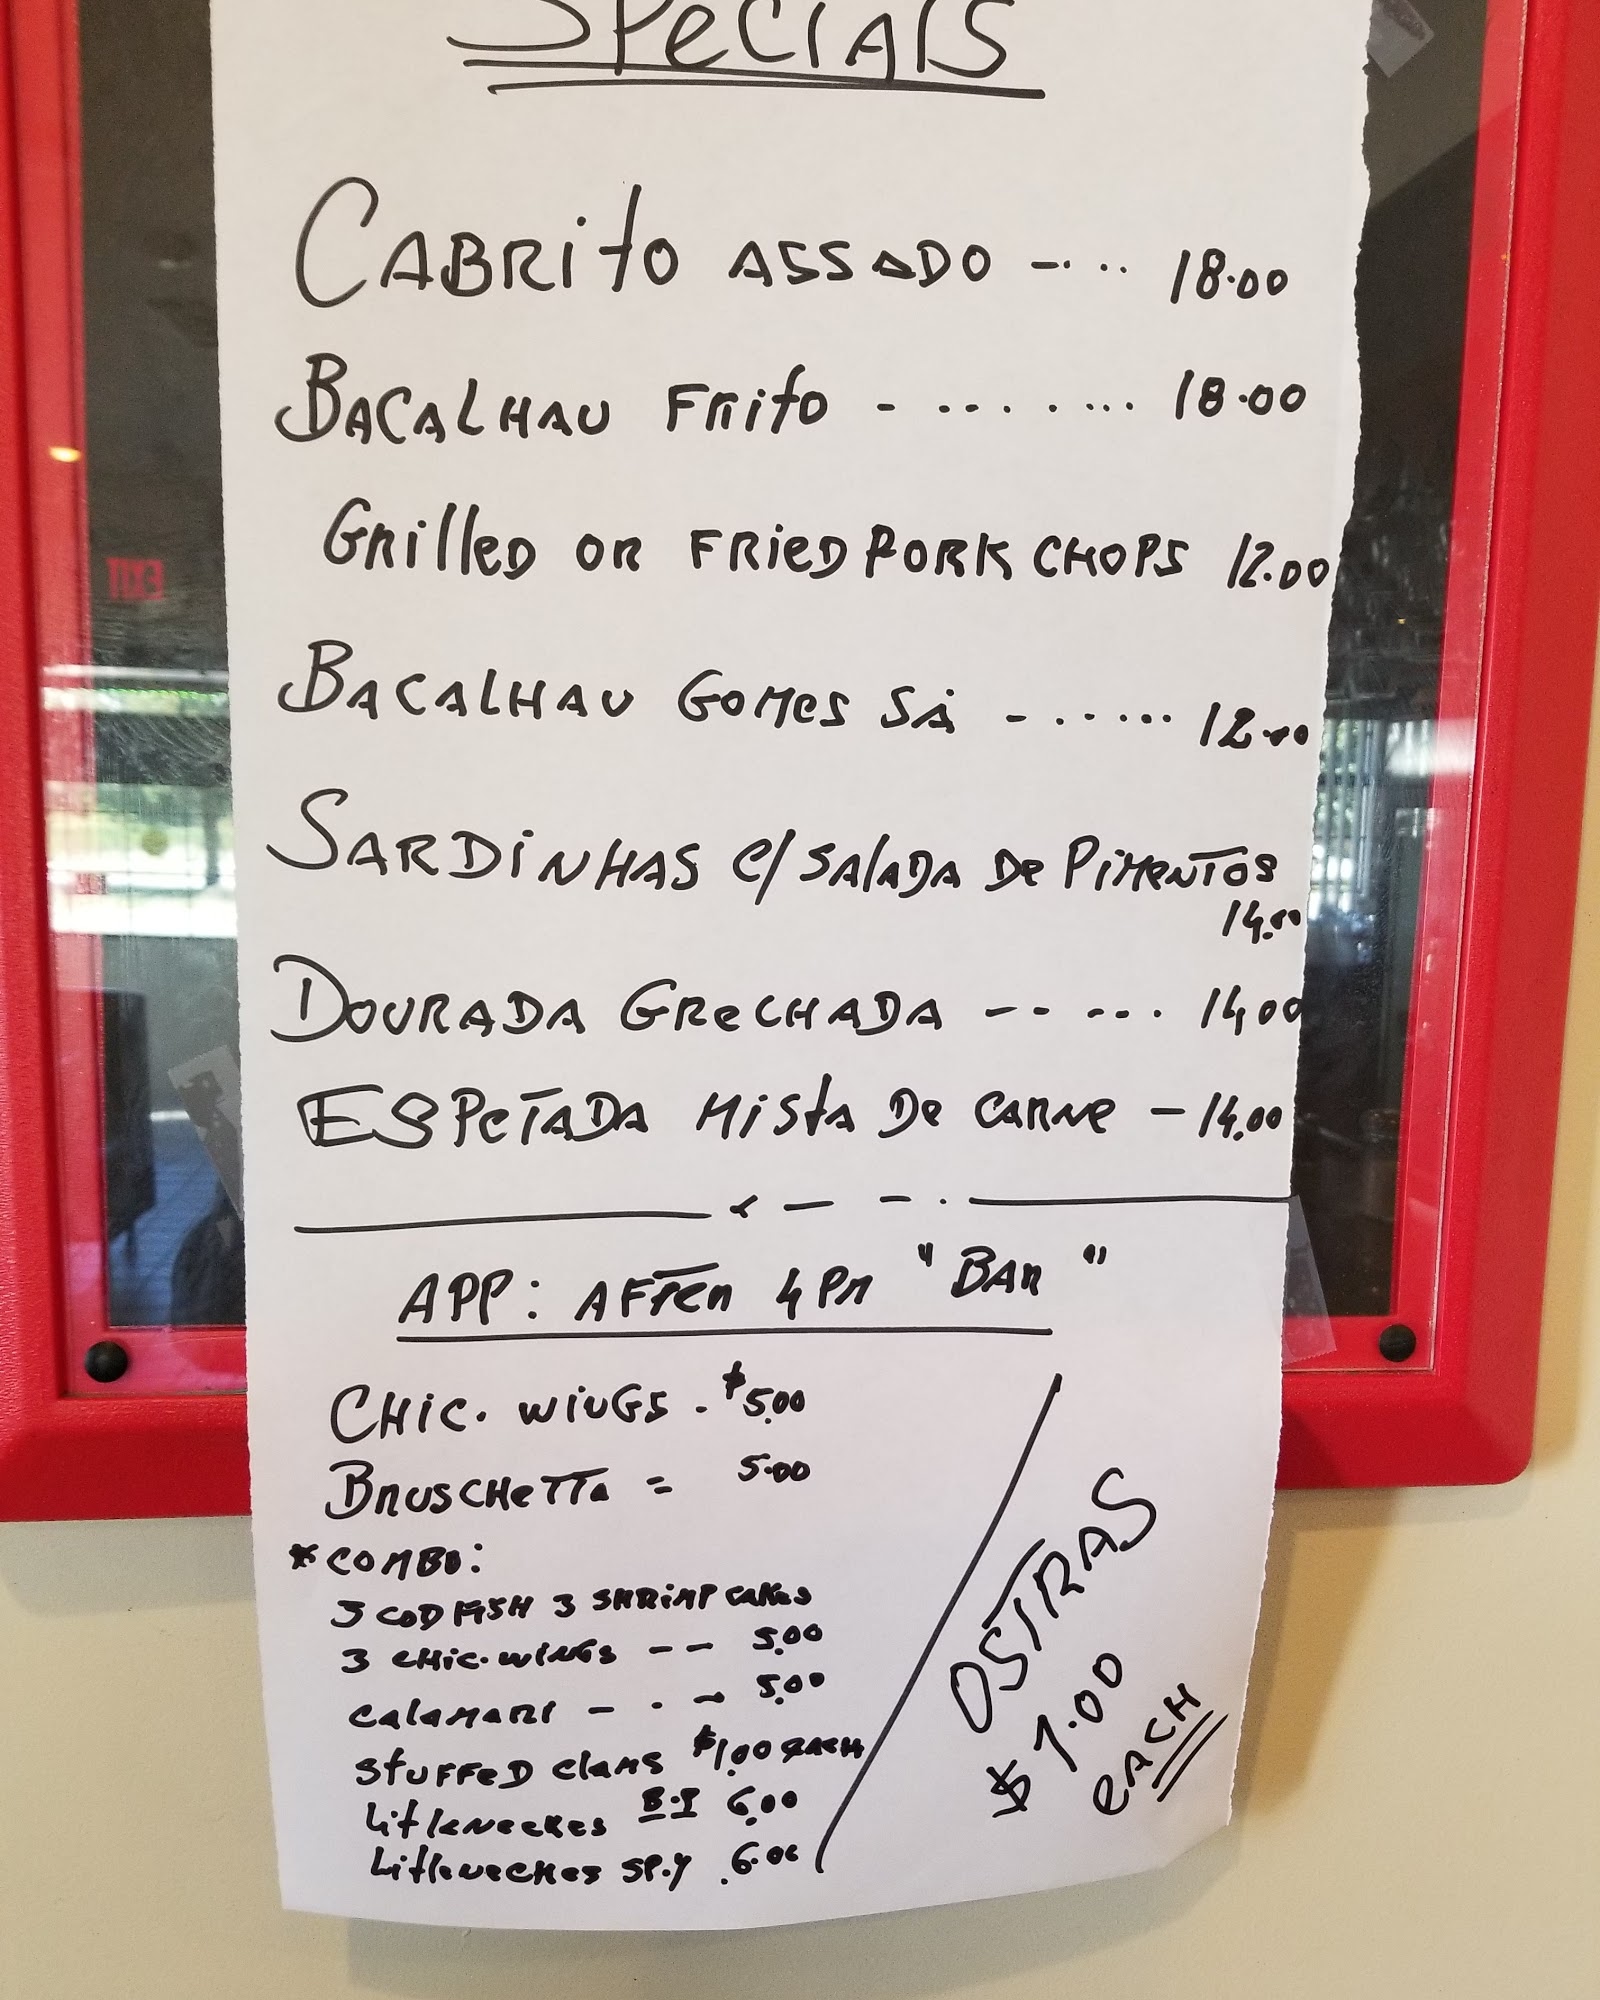 SPeCIAlS
CABRito ASSADO -... 18.00
BACALHAU FRito - ........ 18.00
GRilleD OR FRieD PORK CHOPS 12.00
BACAlHAU GOMeS SÁ - ...... 12.00
SARDiNHAS C/ SAlADA De PiMeNTOS
14.00
DOURADA GReCHADA -- --... 14,00
ESPeTADA MiStA De CARNe - 14.00
APP: AFTeR 4 PM "BAR"
CHiC. WiNGS - $5.00
BRUSCHeTTA = 5.00
* COMBO:
3 CODFISH 3 SHRiMP CAKeS
3 CHiC. WiNGS -- 5.00
CAlAMARI - . - 5.00
StUFFeD ClAMS $1.00 eACH
littleNeCKeS B.I 6.00
littleNeCKeS SP.Y 6.00
OSTRAS
$1.00
eACH
EXIT